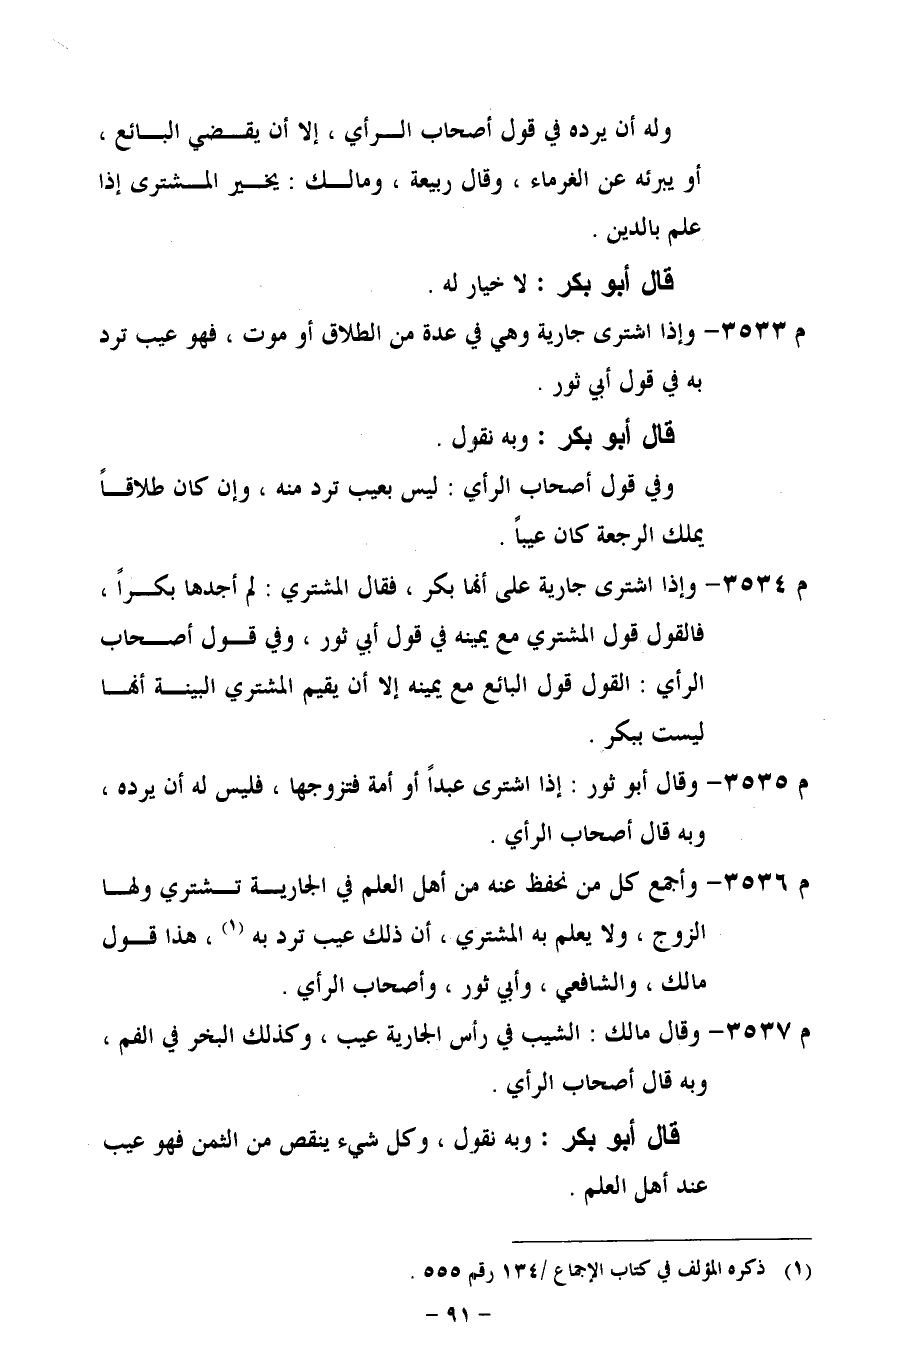 وله أن يرده في قول أصحاب الرأي ، إلا أن يقضي البائع ،
أو يبرئه عن الغرماء ، وقال ربيعة ، ومالك : يخير المشترى إذا
علم بالدين .
قال أبو بكر : لا خيار له .
م ٣٥٣٣- وإذا اشترى جارية وهي في عدة من الطلاق أو موت ، فهو عيب ترد
به في قول أبي ثور .
قال أبو بكر : وبه نقول .
وفي قول أصحاب الرأي : ليس بعيب ترد منه ، وإن كان طلاقاً
يملك الرجعة كان عيباً .
م ٣٥٣٤- وإذا اشترى جارية على أنها بكر ، فقال المشتري : لم أجدها بكراً ،
فالقول قول المشتري مع يمينه في قول أبي ثور ، وفي قول أصحاب
الرأي : القول قول البائع مع يمينه إلا أن يقيم المشتري البينة أنها
ليست ببكر .
م ٣٥٣٥- وقال أبو ثور : إذا اشترى عبداً أو أمة فتزوجها ، فليس له أن يرده ،
وبه قال أصحاب الرأي .
م ٣٥٣٦- وأجمع كل من نحفظ عنه من أهل العلم في الجارية تشتري ولها
الزوج ، ولا يعلم به المشتري ، أن ذلك عيب ترد به (١) ، هذا قول
مالك ، والشافعي ، وأبي ثور ، وأصحاب الرأي .
م ٣٥٣٧- وقال مالك : الشيب في رأس الجارية عيب ، وكذلك البخر في الفم ،
وبه قال أصحاب الرأي .
قال أبو بكر : وبه نقول ، وكل شيء ينقص من الثمن فهو عيب
عند أهل العلم .
(١) ذكره المؤلف في كتاب الإجماع /١٣٤ رقم ٥٥٥ .
- ٩١ -